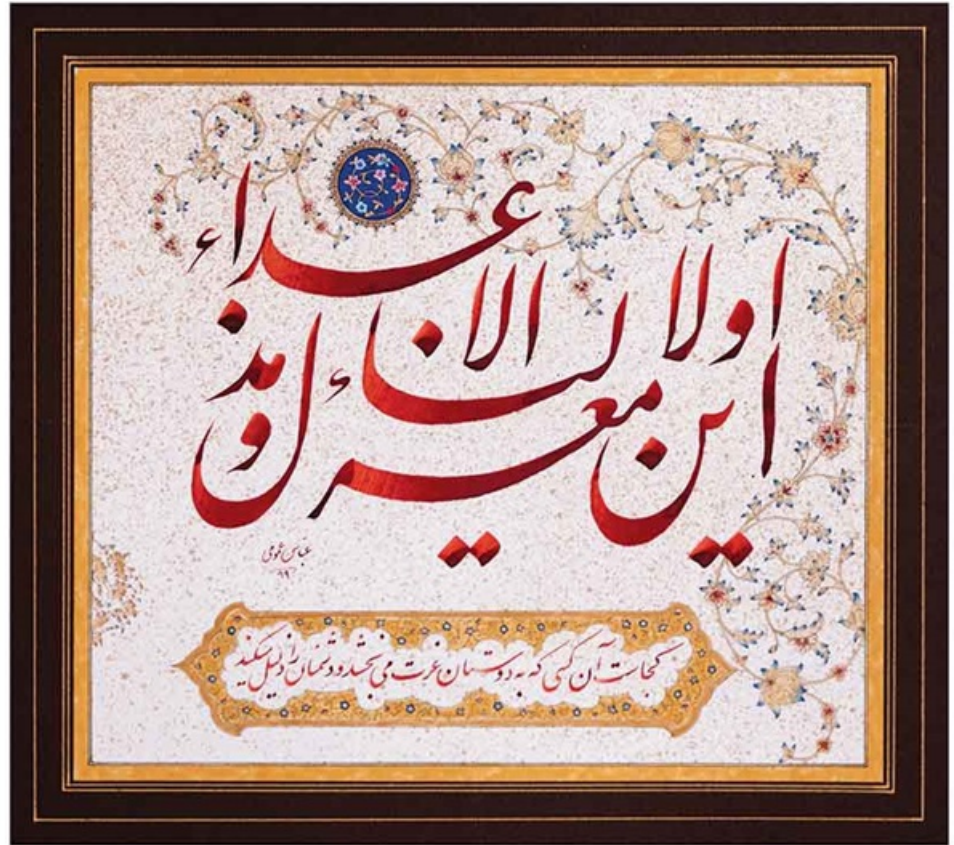 این معز الاولیاء و مذل الاعداء
عباس
کجاست آن کسی که به دوستان عزت می بخشد و دشمنان را ذلیل میکند